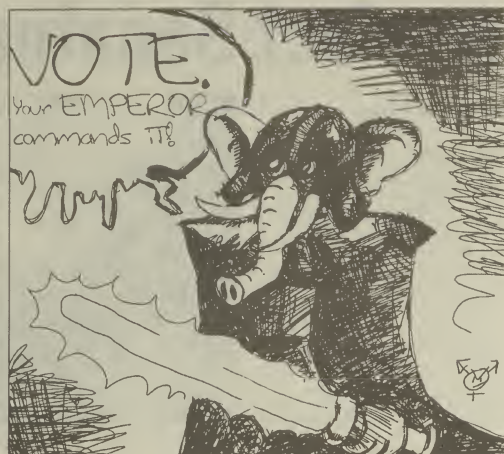 VOTE.
Your EMPEROR
commands IT!
M